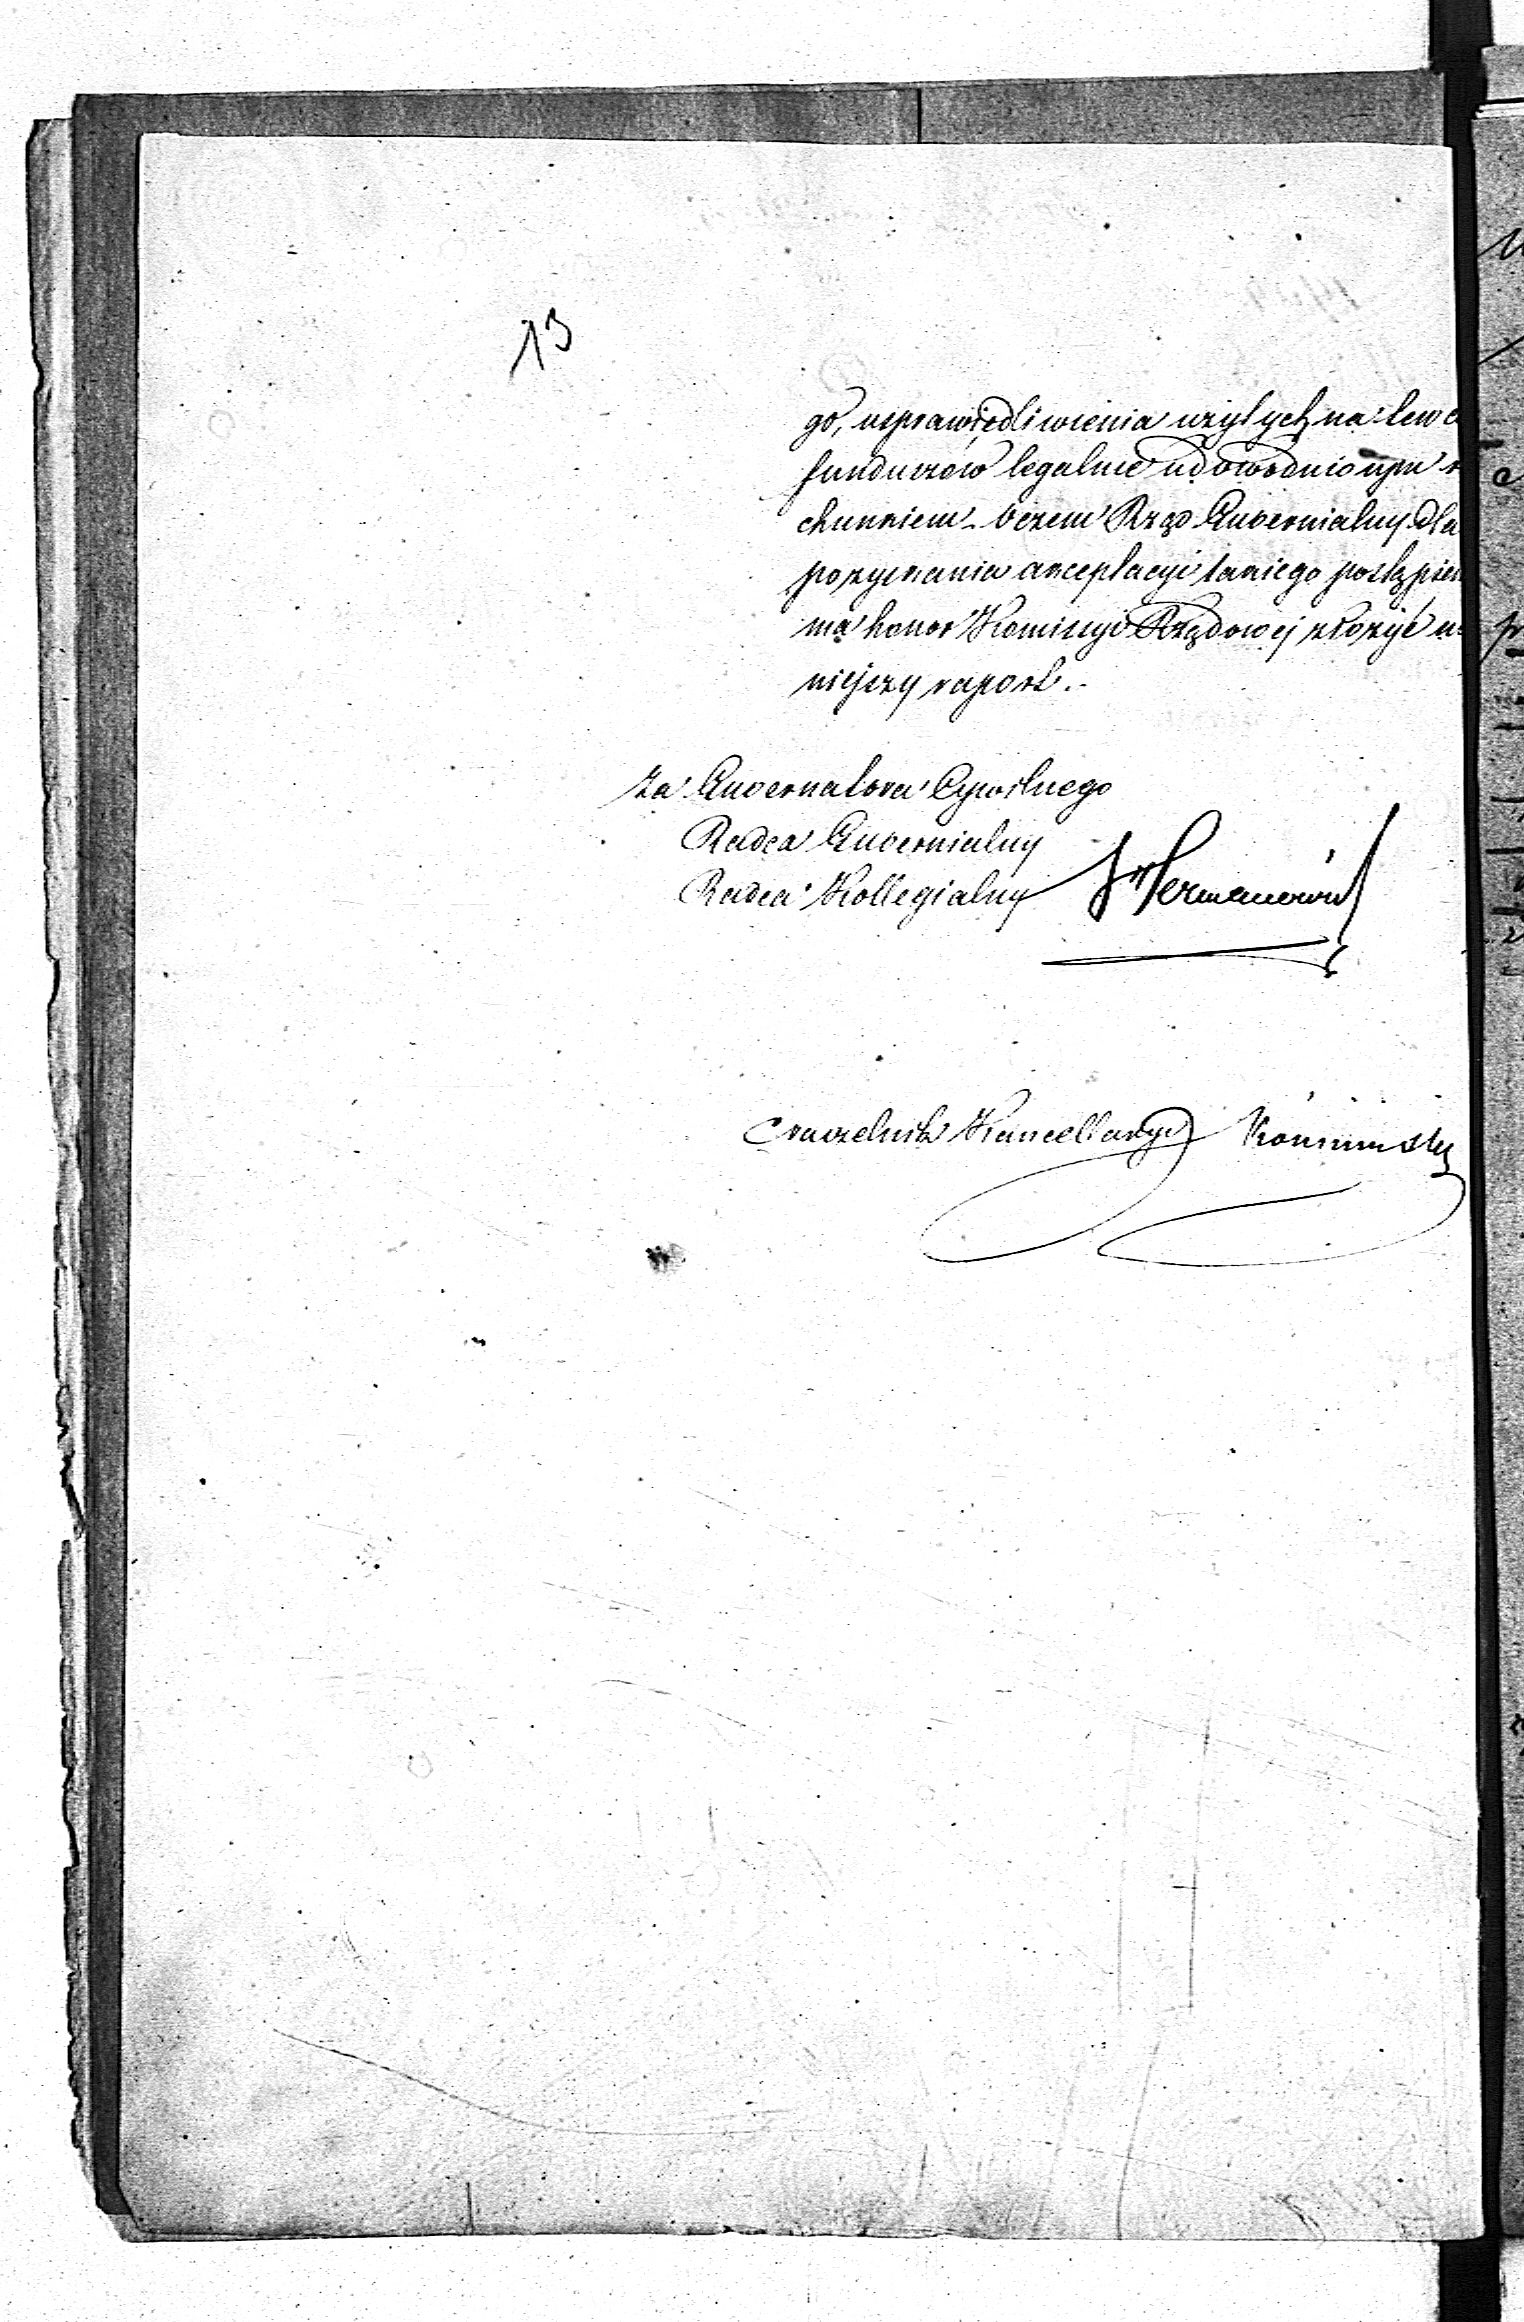 13
go, usprawiedliwienia użytych na ten c
funduszów legalnie udowodnionym r
chunkiem. O czem Rząd Gubernialny dla
pozyskania akceptacyi takiego postąpien
ma honor Kommissyi Rządowej złożyć ni
niejszy raport.
Za Gubernatora Cywilnego
Radca Gubernialny
Radca Kollegialny Hermanowicz
Naczelnik Kancellaryi